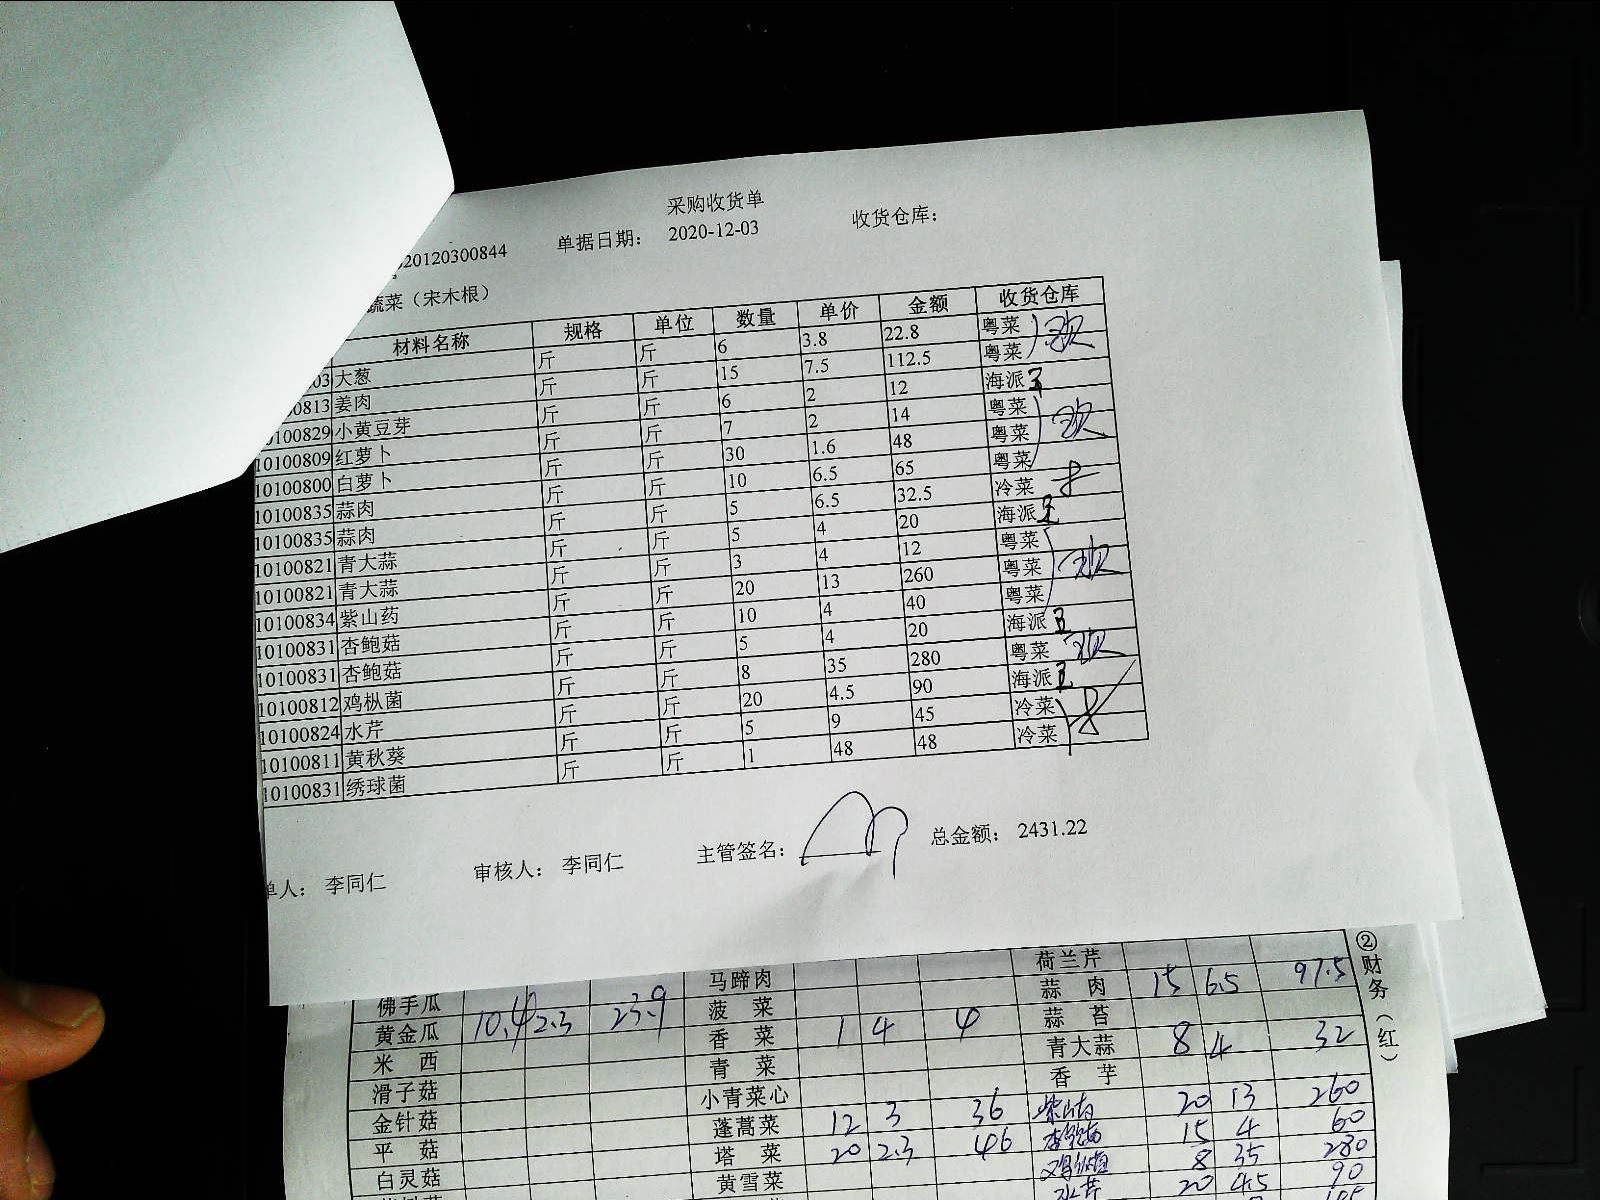 采购收货单
20120300844 单据日期： 2020-12-03 收货仓库：
蔬菜（宋木根）
材料名称 规格 单位 数量 单价 金额 收货仓库
03 大葱 斤 斤 6 3.8 22.8 粤菜
0813 姜肉 斤 斤 15 7.5 112.5 粤菜
10100829 小黄豆芽 斤 斤 6 2 12 海派
10100809 红萝卜 斤 斤 7 2 14 粤菜
10100800 白萝卜 斤 斤 30 1.6 48 粤菜
10100835 蒜肉 斤 斤 10 6.5 65 粤菜
10100835 蒜肉 斤 斤 5 6.5 32.5 冷菜
10100821 青大蒜 斤 斤 5 4 20 海派
10100821 青大蒜 斤 斤 3 4 12 粤菜
10100834 紫山药 斤 斤 20 13 260 粤菜
10100831 杏鲍菇 斤 斤 10 4 40 粤菜
10100831 杏鲍菇 斤 斤 5 4 20 海派
10100812 鸡枞菌 斤 斤 8 35 280 粤菜
10100824 水芹 斤 斤 20 4.5 90 海派
10100811 黄秋葵 斤 斤 5 9 45 冷菜
10100831 绣球菌 斤 斤 1 48 48 冷菜
单人： 李同仁 审核人： 李同仁 主管签名： 总金额： 2431.22
马蹄肉 荷兰芹
佛手瓜 菠菜 蒜肉 15 6.5 97.5
黄金瓜 10.4 2.3 23.9 香菜 1 4 4 蒜苔
米西 青菜 青大蒜 8 4 32
滑子菇 小青菜心 香芋
金针菇 蓬蒿菜 12 3 36 紫山药 20 13 260
平菇 塔菜 20 2.3 46 杏鲍菇 15 4 60
白灵菇 黄雪菜 鸡枞菌 8 35 280
水芹 20 4.5 90
②财务（红）